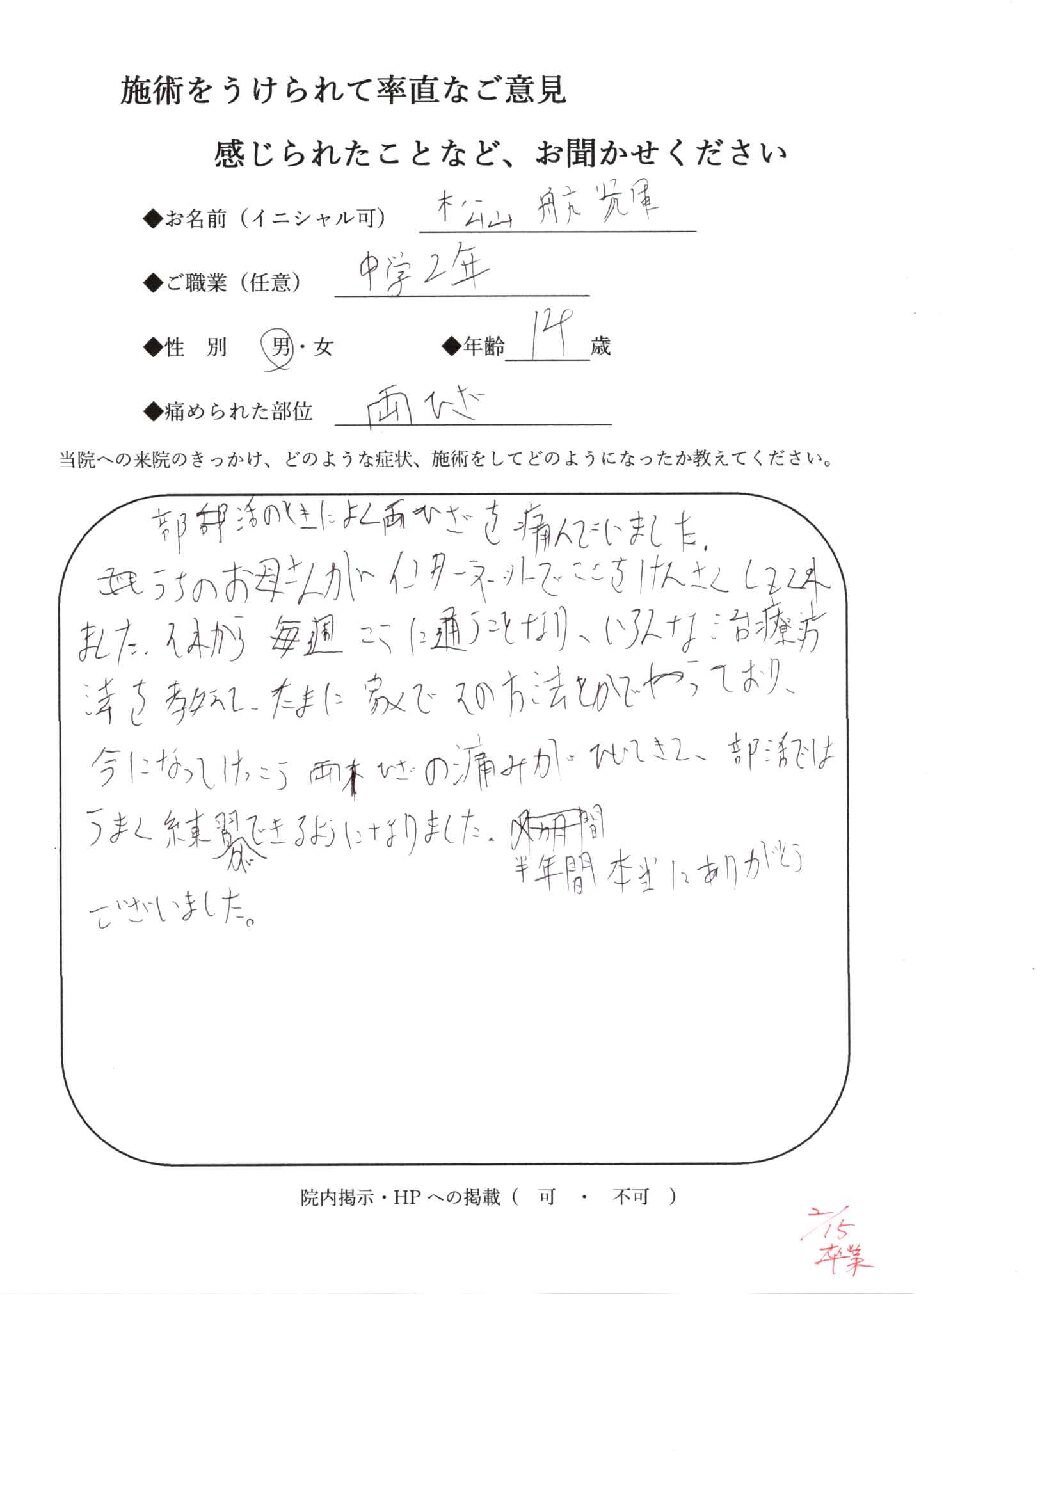 施術をうけられて率直なご意見
感じられたことなど、お聞かせください
◆お名前（イニシャル可） 松山 航
◆ご職業（任意） 中学2年
◆性 別 男・女 ◆年齢 14 歳
◆痛められた部位 両ひざ
当院への来院のきっかけ、どのような症状、施術をしてどのようになったか教えてください。
部活のときによく両ひざを痛んでいました。
うちのお母さんがインターネットでここをけんさくしてくれ
ました。それから毎週ここに通うことなり、いろんな治療方
法を教えて、たまに家でその方法とかでやっており、
今になってけっこう両ひざの痛みがひいてきて、部活では
うまく練習ができるようになりました。
半年間本当にありがとう
ございました。
院内掲示・HPへの掲載（ 可 ・ 不可 ）
2/15
卒業